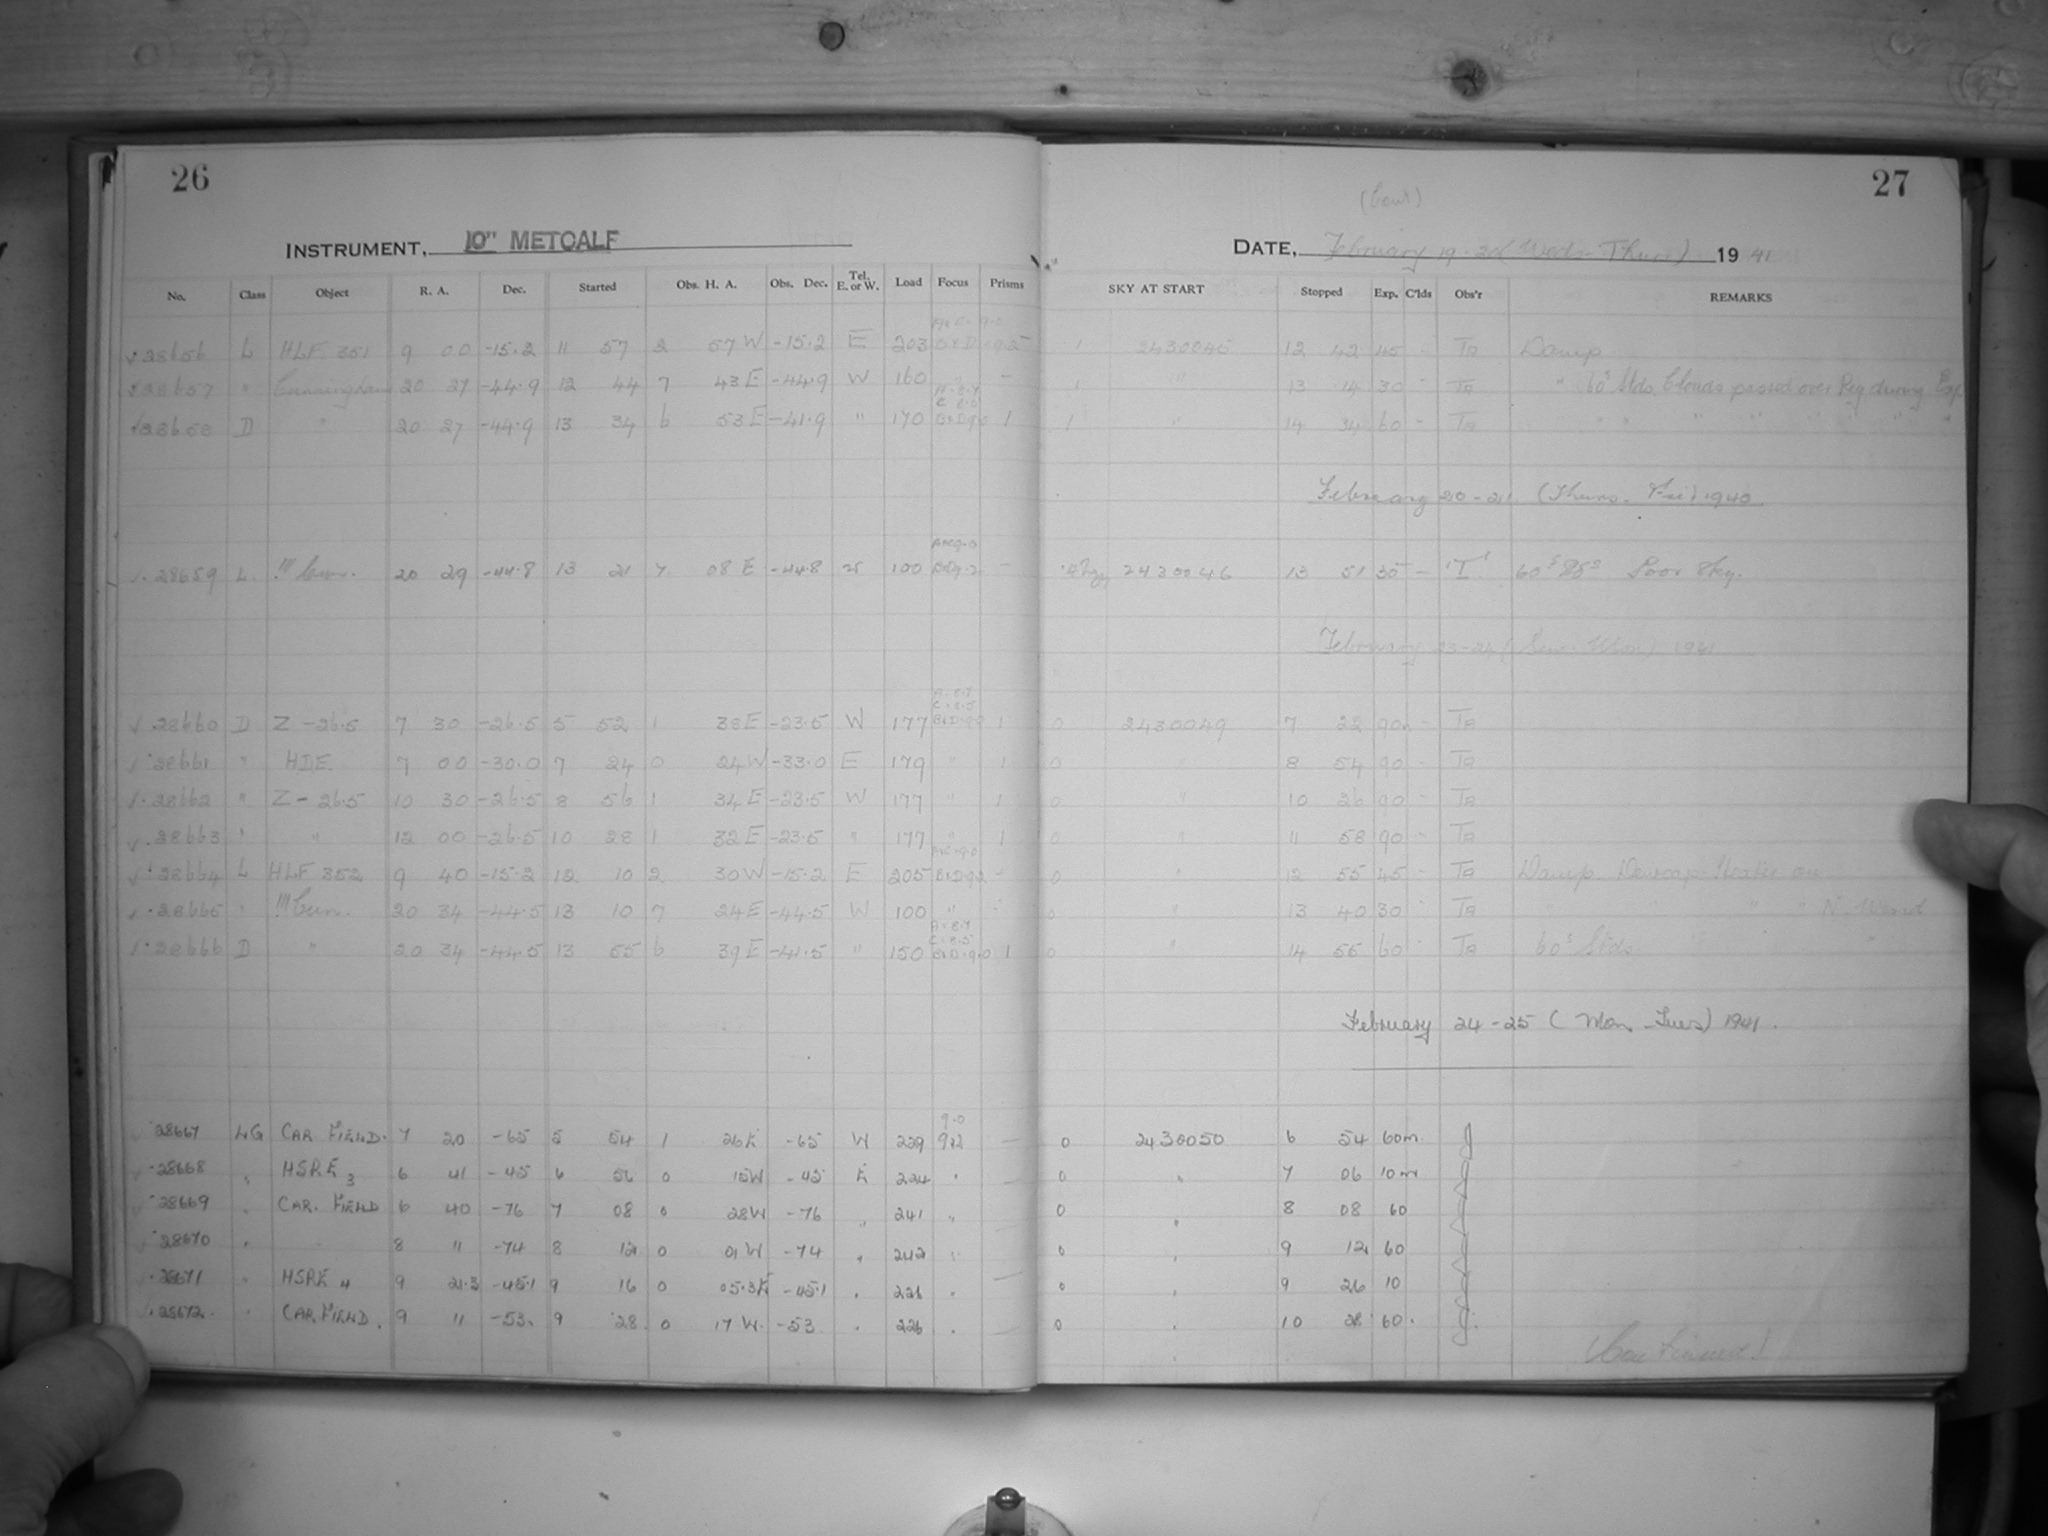 26
INSTRUMENT, 10" METCALF
No. Class Object R. A. Dec. Started Obs. H. A. Obs. Dec. Tel. E. or W. Load Focus Prisms
28656 L HLF 351 9 00 -15.2 11 57 2 57 W -15.2 E 203
28657 " Cunningham 20 27 -44.9 12 44 7 43 E -44.9 W 160 -
28658 D " 20 27 -44.9 13 34 6 53 E -41.9 " 170 B+D 9.0 1
28659 L. !!! Cun. 20 29 -44.8 13 21 7 08 E -44.8 W 100 -
28660 D Z -26.5 7 30 -26.5 5 52 1 38 E -23.5 W 177 A. 8.7 C. 8.5 B+D. 9.0 1
28661 " HDE 7 00 -30.0 7 24 0 24 W -33.0 E 179 " 1
28662 " Z - 26.5 10 30 -26.5 8 56 1 34 E -23.5 W 177 " 1
28663 " " 12 00 -26.5 10 28 1 32 E -23.5 " 177 " 1
28664 L HLF 352 9 40 -15.2 12 10 2 30 W -15.2 E 205 A+C. 9.0 B+D. 9.2 -
28665 " !!! Cun. 20 34 -44.5 13 10 7 24 E -44.5 W 100 "
28666 D " 20 34 -44.5 13 55 6 39 E -41.5 " 150 A. 8.7 C. 8.5 B+D. 9.0 1
28667 LG CAR FIELD. 7 20 -65 5 54 1 26 E -65 W 229 9.0 9.2 -
28668 " HSRE 3 6 41 -45 6 56 0 15 W -45 E 224 " -
28669 " CAR. FIELD 6 40 -76 7 08 0 28 W -76 " 241 "
28670 " 8 11 -74 8 12 0 01 W -74 " 242 "
28671 " HSRE 4 9 21.3 -45.1 9 16 0 05.3 E -45.1 " 226 " -
28672 " CAR. FIELD. 9 11 -53. 9 28 0 17 W. -53 " 226 " -
27
(Cont)
DATE, February 19-20 (Wed - Thurs) 19 41
SKY AT START Stopped Exp. C'lds Obs'r REMARKS
1 2430045 12 42 45 - Ta Damp
1 " 13 14 30 - Ta " 60s Stds. Clouds passed over Reg during Exp
1 " 14 34 60 - Ta " " " " " " "
February 20-21. (Thurs - Fri) 1940
2430046 13 51 30 - 'T' Poor Sky.
February 23-24 (Sun - Mon) 1941
0 2430049 7 22 90 - Ta
0 " 8 54 90 - Ta
0 " 10 26 90 - Ta
0 " 11 58 90 - Ta
0 " 12 55 45 - Ta Damp. Dewcap Heater on
0 " 13 40 30 Ta " " " N. Wind
0 " 14 55 60 Ta 60s Stds "
February 24-25 (Mon - Tues) 1941.
0 2430050 6 54 60m.
0 " 7 06 10m
0 " 8 08 60
0 " 9 12 60
0 " 9 26 10
0 " 10 28 60.
(Continued)